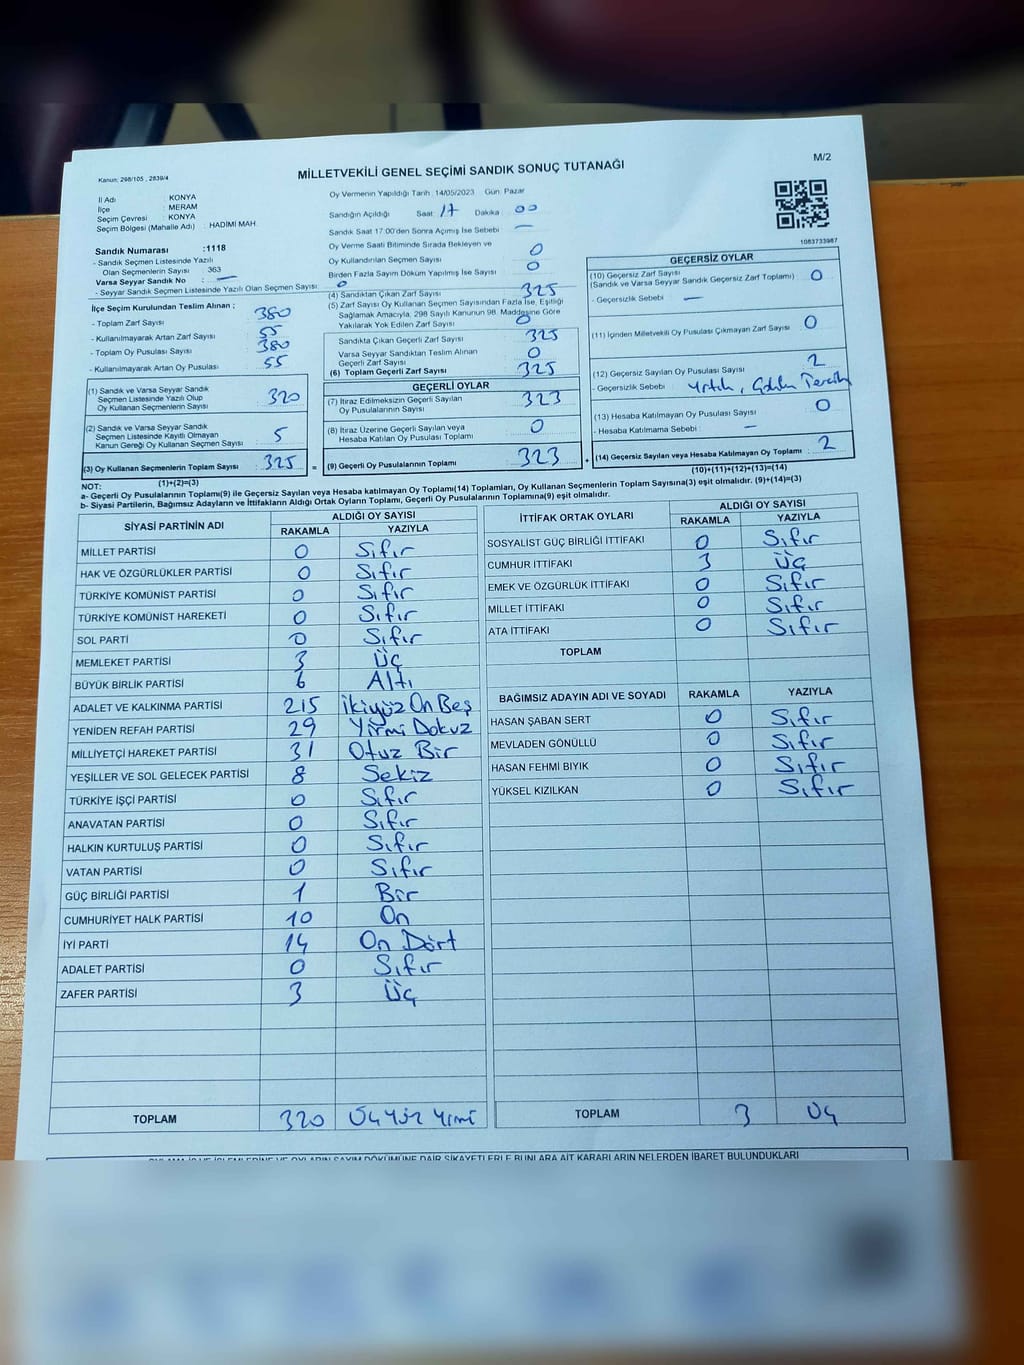 M/2
Kanun: 298/105 , 2839/4
MİLLETVEKİLİ GENEL SEÇİMİ SANDIK SONUÇ TUTANAĞI
İl Adı : KONYA
İlçe : MERAM
Seçim Çevresi : KONYA
Seçim Bölgesi (Mahalle Adı) : HADİMİ MAH
Sandık Numarası :1118
- Sandık Seçmen Listesinde Yazılı
Olan Seçmenlerin Sayısı : 363
Varsa Seyyar Sandık No : —
- Seyyar Sandık Seçmen Listesinde Yazılı Olan Seçmen Sayısı : 0
Oy Vermenin Yapıldığı Tarih :14/05/2023 Gün: Pazar
Sandığın Açıldığı Saat : 17 Dakika : 00
Sandık Saat 17:00'den Sonra Açılmış İse Sebebi : —
Oy Verme Saati Bitiminde Sırada Bekleyen ve
Oy Kullandırılan Seçmen Sayısı : 0
Birden Fazla Sayım Döküm Yapılmış İse Sayısı : 0
1083733987
İlçe Seçim Kurulundan Teslim Alınan ;
- Toplam Zarf Sayısı : 380
- Kullanılmayarak Artan Zarf Sayısı : 55
- Toplam Oy Pusulası Sayısı : 380
- Kullanılmayarak Artan Oy Pusulası : 55
(1) Sandık ve Varsa Seyyar Sandık
Seçmen Listesinde Yazılı Olup
Oy Kullanan Seçmenlerin Sayısı : 320
(2) Sandık ve Varsa Seyyar Sandık
Seçmen Listesinde Kayıtlı Olmayan
Kanun Gereği Oy Kullanan Seçmen Sayısı : 5
(3) Oy Kullanan Seçmenlerin Toplam Sayısı : 325
(1)+(2)=(3)
(4) Sandıktan Çıkan Zarf Sayısı : 325
(5) Zarf Sayısı Oy Kullanan Seçmen Sayısından Fazla İse, Eşitliği
Sağlamak Amacıyla, 298 Sayılı Kanunun 98. Maddesine Göre
Yakılarak Yok Edilen Zarf Sayısı : 0
Sandıkta Çıkan Geçerli Zarf Sayısı : 325
Varsa Seyyar Sandıktan Teslim Alınan
Geçerli Zarf Sayısı : 0
(6) Toplam Geçerli Zarf Sayısı : 325
GEÇERLİ OYLAR
(7) İtiraz Edilmeksizin Geçerli Sayılan
Oy Pusulalarının Sayısı : 323
(8) İtiraz Üzerine Geçerli Sayılan veya
Hesaba Katılan Oy Pusulası Toplamı : 0
= (9) Geçerli Oy Pusulalarının Toplamı : 323
GEÇERSİZ OYLAR
(10) Geçersiz Zarf Sayısı
(Sandık ve Varsa Seyyar Sandık Geçersiz Zarf Toplamı) : 0
- Geçersizlik Sebebi : —
(11) İçinden Milletvekili Oy Pusulası Çıkmayan Zarf Sayısı : 0
(12) Geçersiz Sayılan Oy Pusulası Sayısı : 2
- Geçersizlik Sebebi : Yırtık,
(13) Hesaba Katılmayan Oy Pusulası Sayısı : 0
- Hesaba Katılmama Sebebi : —
+ (14) Geçersiz Sayılan veya Hesaba Katılmayan Oy Toplamı : 2
(10)+(11)+(12)+(13)=(14)
NOT:
a- Geçerli Oy Pusulalarının Toplamı(9) ile Geçersiz Sayılan veya Hesaba katılmayan Oy Toplamı(14) Toplamları, Oy Kullanan Seçmenlerin Toplam Sayısına(3) eşit olmalıdır. (9)+(14)=(3)
b- Siyasi Partilerin, Bağımsız Adayların ve İttifakların Aldığı Ortak Oyların Toplamı, Geçerli Oy Pusulalarının Toplamına(9) eşit olmalıdır.
SİYASİ PARTİNİN ADI ALDIĞI OY SAYISI
RAKAMLA YAZIYLA
MİLLET PARTİSİ 0 Sıfır
HAK VE ÖZGÜRLÜKLER PARTİSİ 0 Sıfır
TÜRKİYE KOMÜNİST PARTİSİ 0 Sıfır
TÜRKİYE KOMÜNİST HAREKETİ 0 Sıfır
SOL PARTİ 0 Sıfır
MEMLEKET PARTİSİ 3 Üç
BÜYÜK BİRLİK PARTİSİ 6 Altı
ADALET VE KALKINMA PARTİSİ 215 İkiyüz On Beş
YENİDEN REFAH PARTİSİ 29 Yirmi Dokuz
MİLLİYETÇİ HAREKET PARTİSİ 31 Otuz Bir
YEŞİLLER VE SOL GELECEK PARTİSİ 8 Sekiz
TÜRKİYE İŞÇİ PARTİSİ 0 Sıfır
ANAVATAN PARTİSİ 0 Sıfır
HALKIN KURTULUŞ PARTİSİ 0 Sıfır
VATAN PARTİSİ 0 Sıfır
GÜÇ BİRLİĞİ PARTİSİ 1 Bir
CUMHURİYET HALK PARTİSİ 10 On
İYİ PARTİ 14 On Dört
ADALET PARTİSİ 0 Sıfır
ZAFER PARTİSİ 3 Üç
TOPLAM 320 Üç Yüz Yirmi
İTTİFAK ORTAK OYLARI ALDIĞI OY SAYISI
RAKAMLA YAZIYLA
SOSYALİST GÜÇ BİRLİĞİ İTTİFAKI 0 Sıfır
CUMHUR İTTİFAKI 3 Üç
EMEK VE ÖZGÜRLÜK İTTİFAKI 0 Sıfır
MİLLET İTTİFAKI 0 Sıfır
ATA İTTİFAKI 0 Sıfır
TOPLAM
BAĞIMSIZ ADAYIN ADI VE SOYADI RAKAMLA YAZIYLA
HASAN ŞABAN SERT 0 Sıfır
MEVLADEN GÖNÜLLÜ 0 Sıfır
HASAN FEHMİ BIYIK 0 Sıfır
YÜKSEL KIZILKAN 0 Sıfır
TOPLAM 3 Üç
OYLAMA İŞ VE İŞLEMLERİNE VE OYLARIN SAYIM DÖKÜMÜNE DAİR ŞİKAYETLERLE BUNLARA AİT KARARLARIN NELERDEN İBARET BULUNDUKLARI